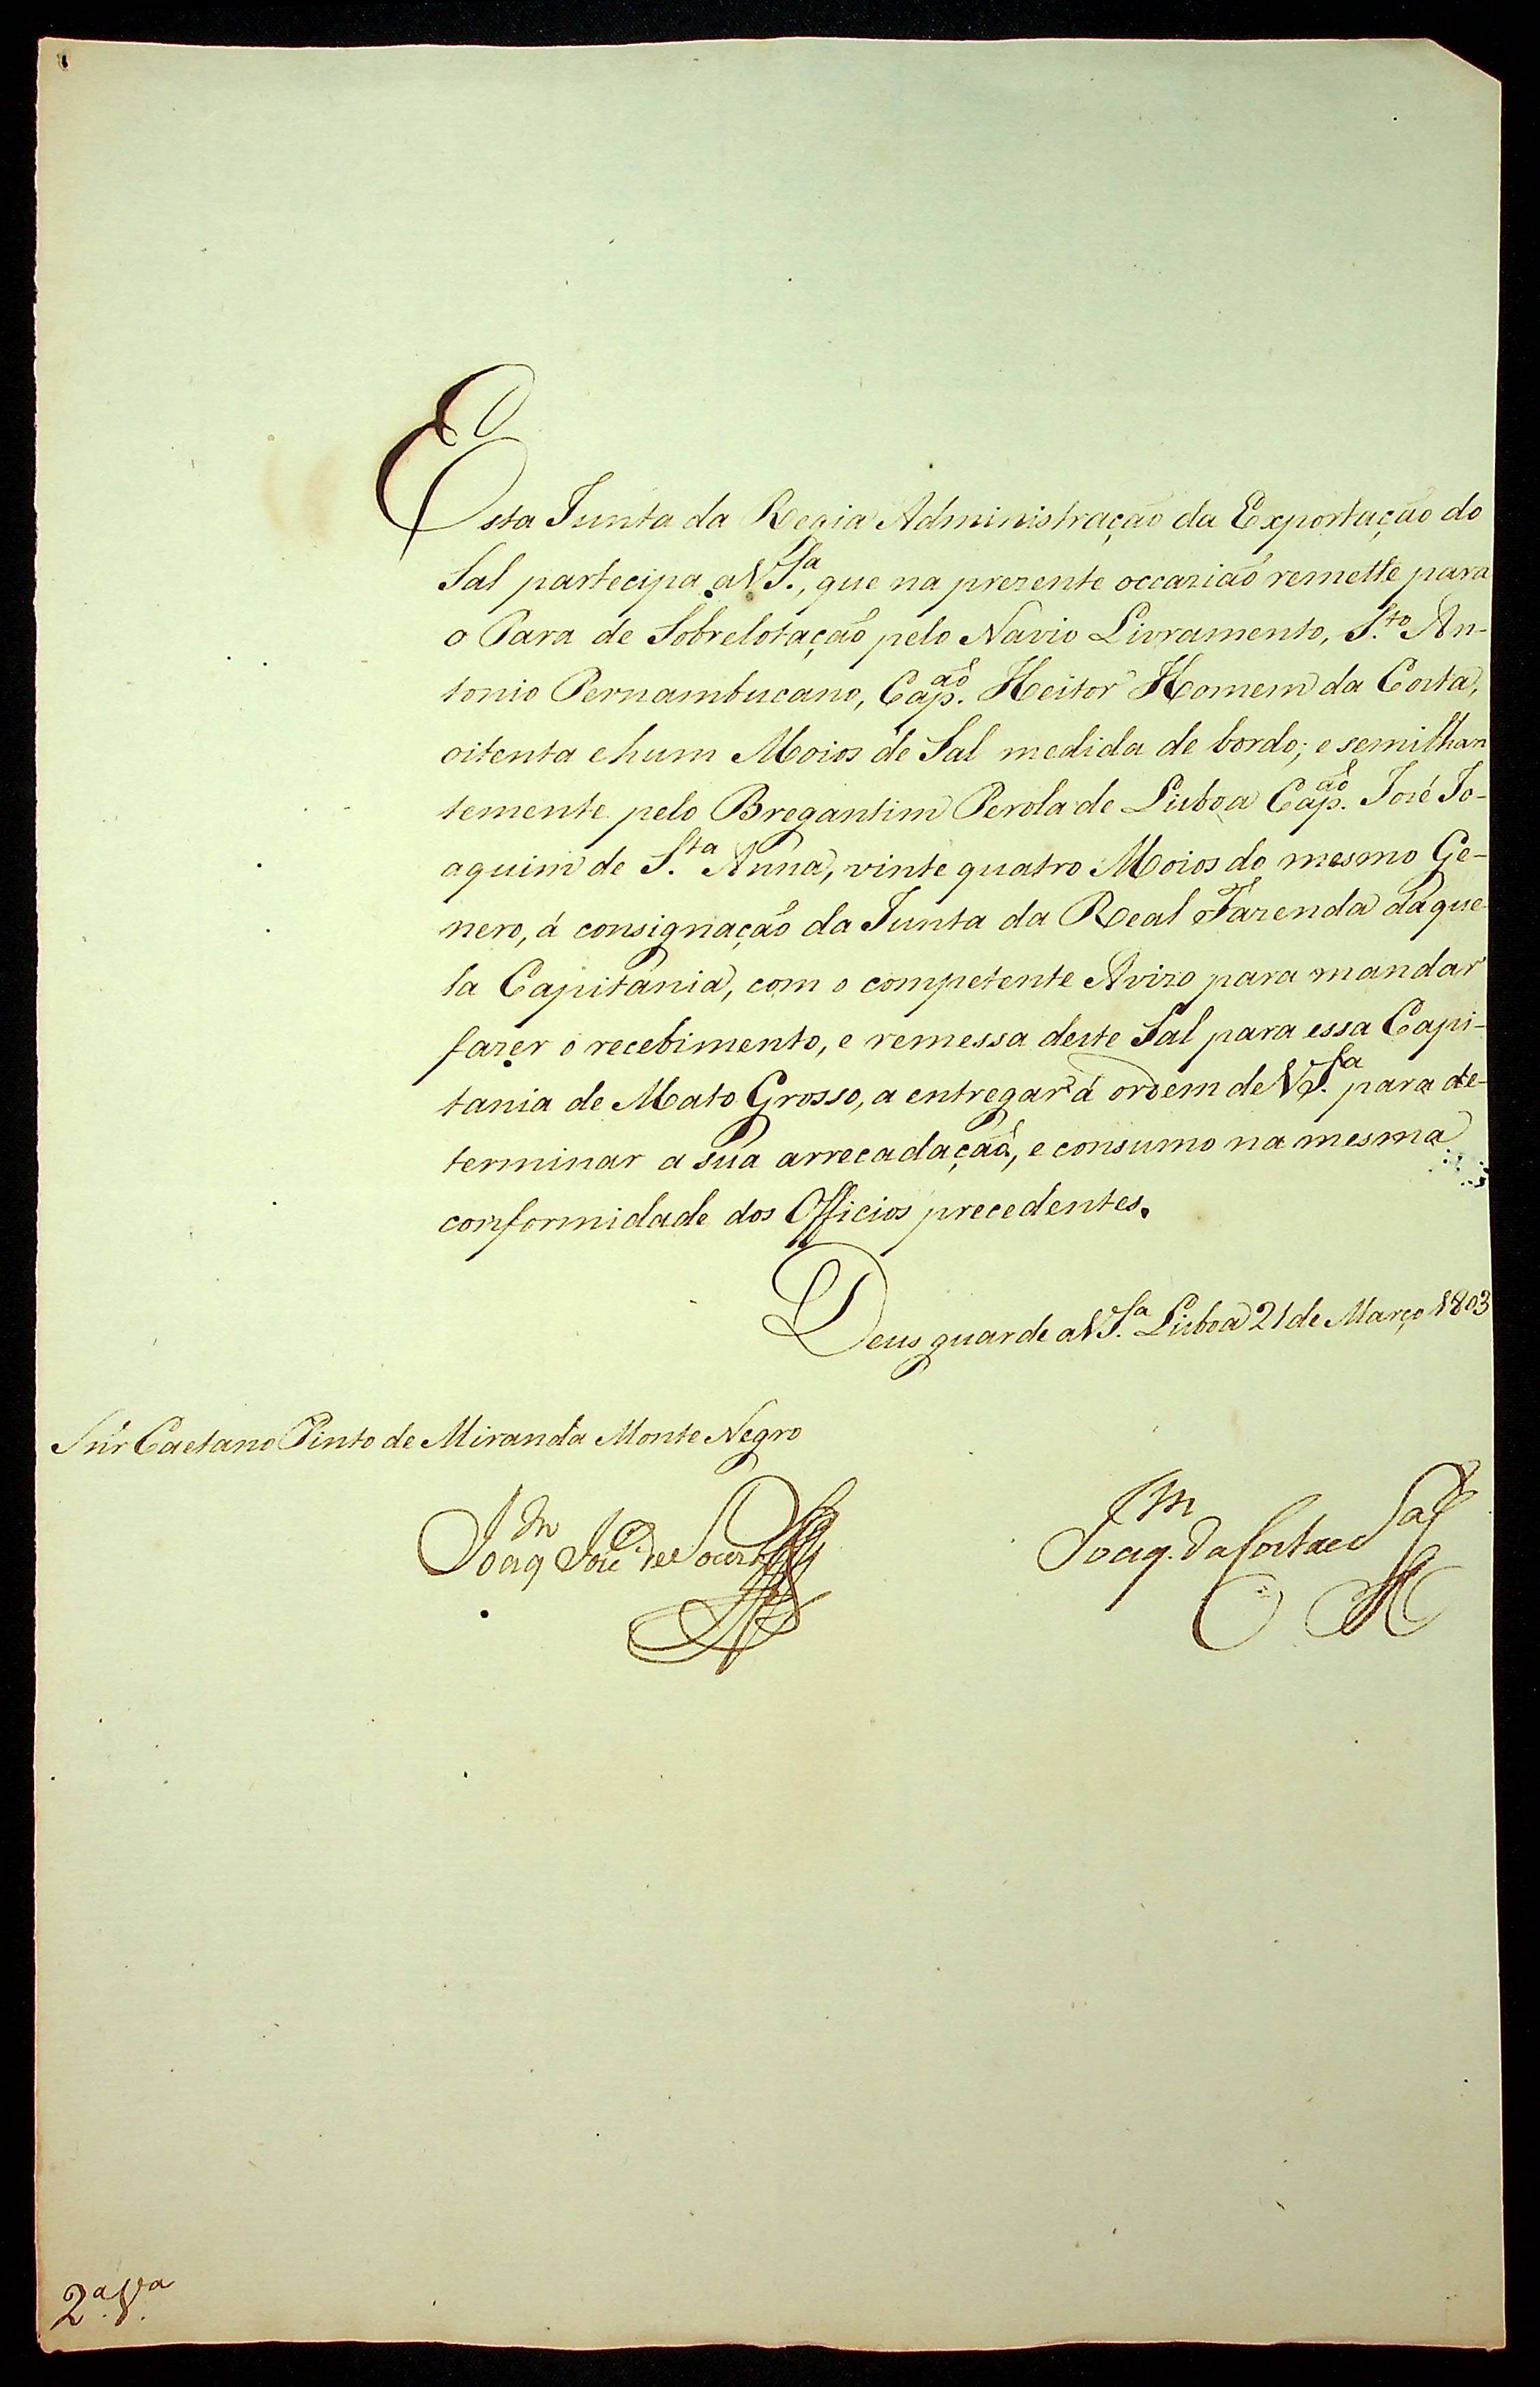 Esta Junta da Regia Administração da Exportação do
Sal partecipa a V S.ª, que na prezente occazião remette para
o Para de Sobrelotação pelo Navio Livramento, S.to An-
tonio Pernambucano, Cap.ão Heitor Homem da Costa,
oitenta e hum Moios de Sal medida de bordo; e semilhan
temente pelo Bregantim Perola de Lisboa Cap.ão José Jo-
aquim de S.ta Anna, vinte quatro Moios do mesmo Ge-
nero, á consignação da Junta da Real Fazenda daque-
la Capitania, com o competente Avizo para mandar
fazer o recebimento, e remessa deste Sal para essa Capi-
tania de Mato Grosso, a entregar á ordem de V S.ª para de-
terminar a sua arrecadação, e consumo na mesma
conformidade dos Officios precedentes.
Deus guarde a V S.ª Lisboa 21 de Março 1803
Snr Caetano Pinto de Miranda Monte Negro
Joaq.m José de Souza
Joaq.m da Costa e Sa
2.ª V.ª